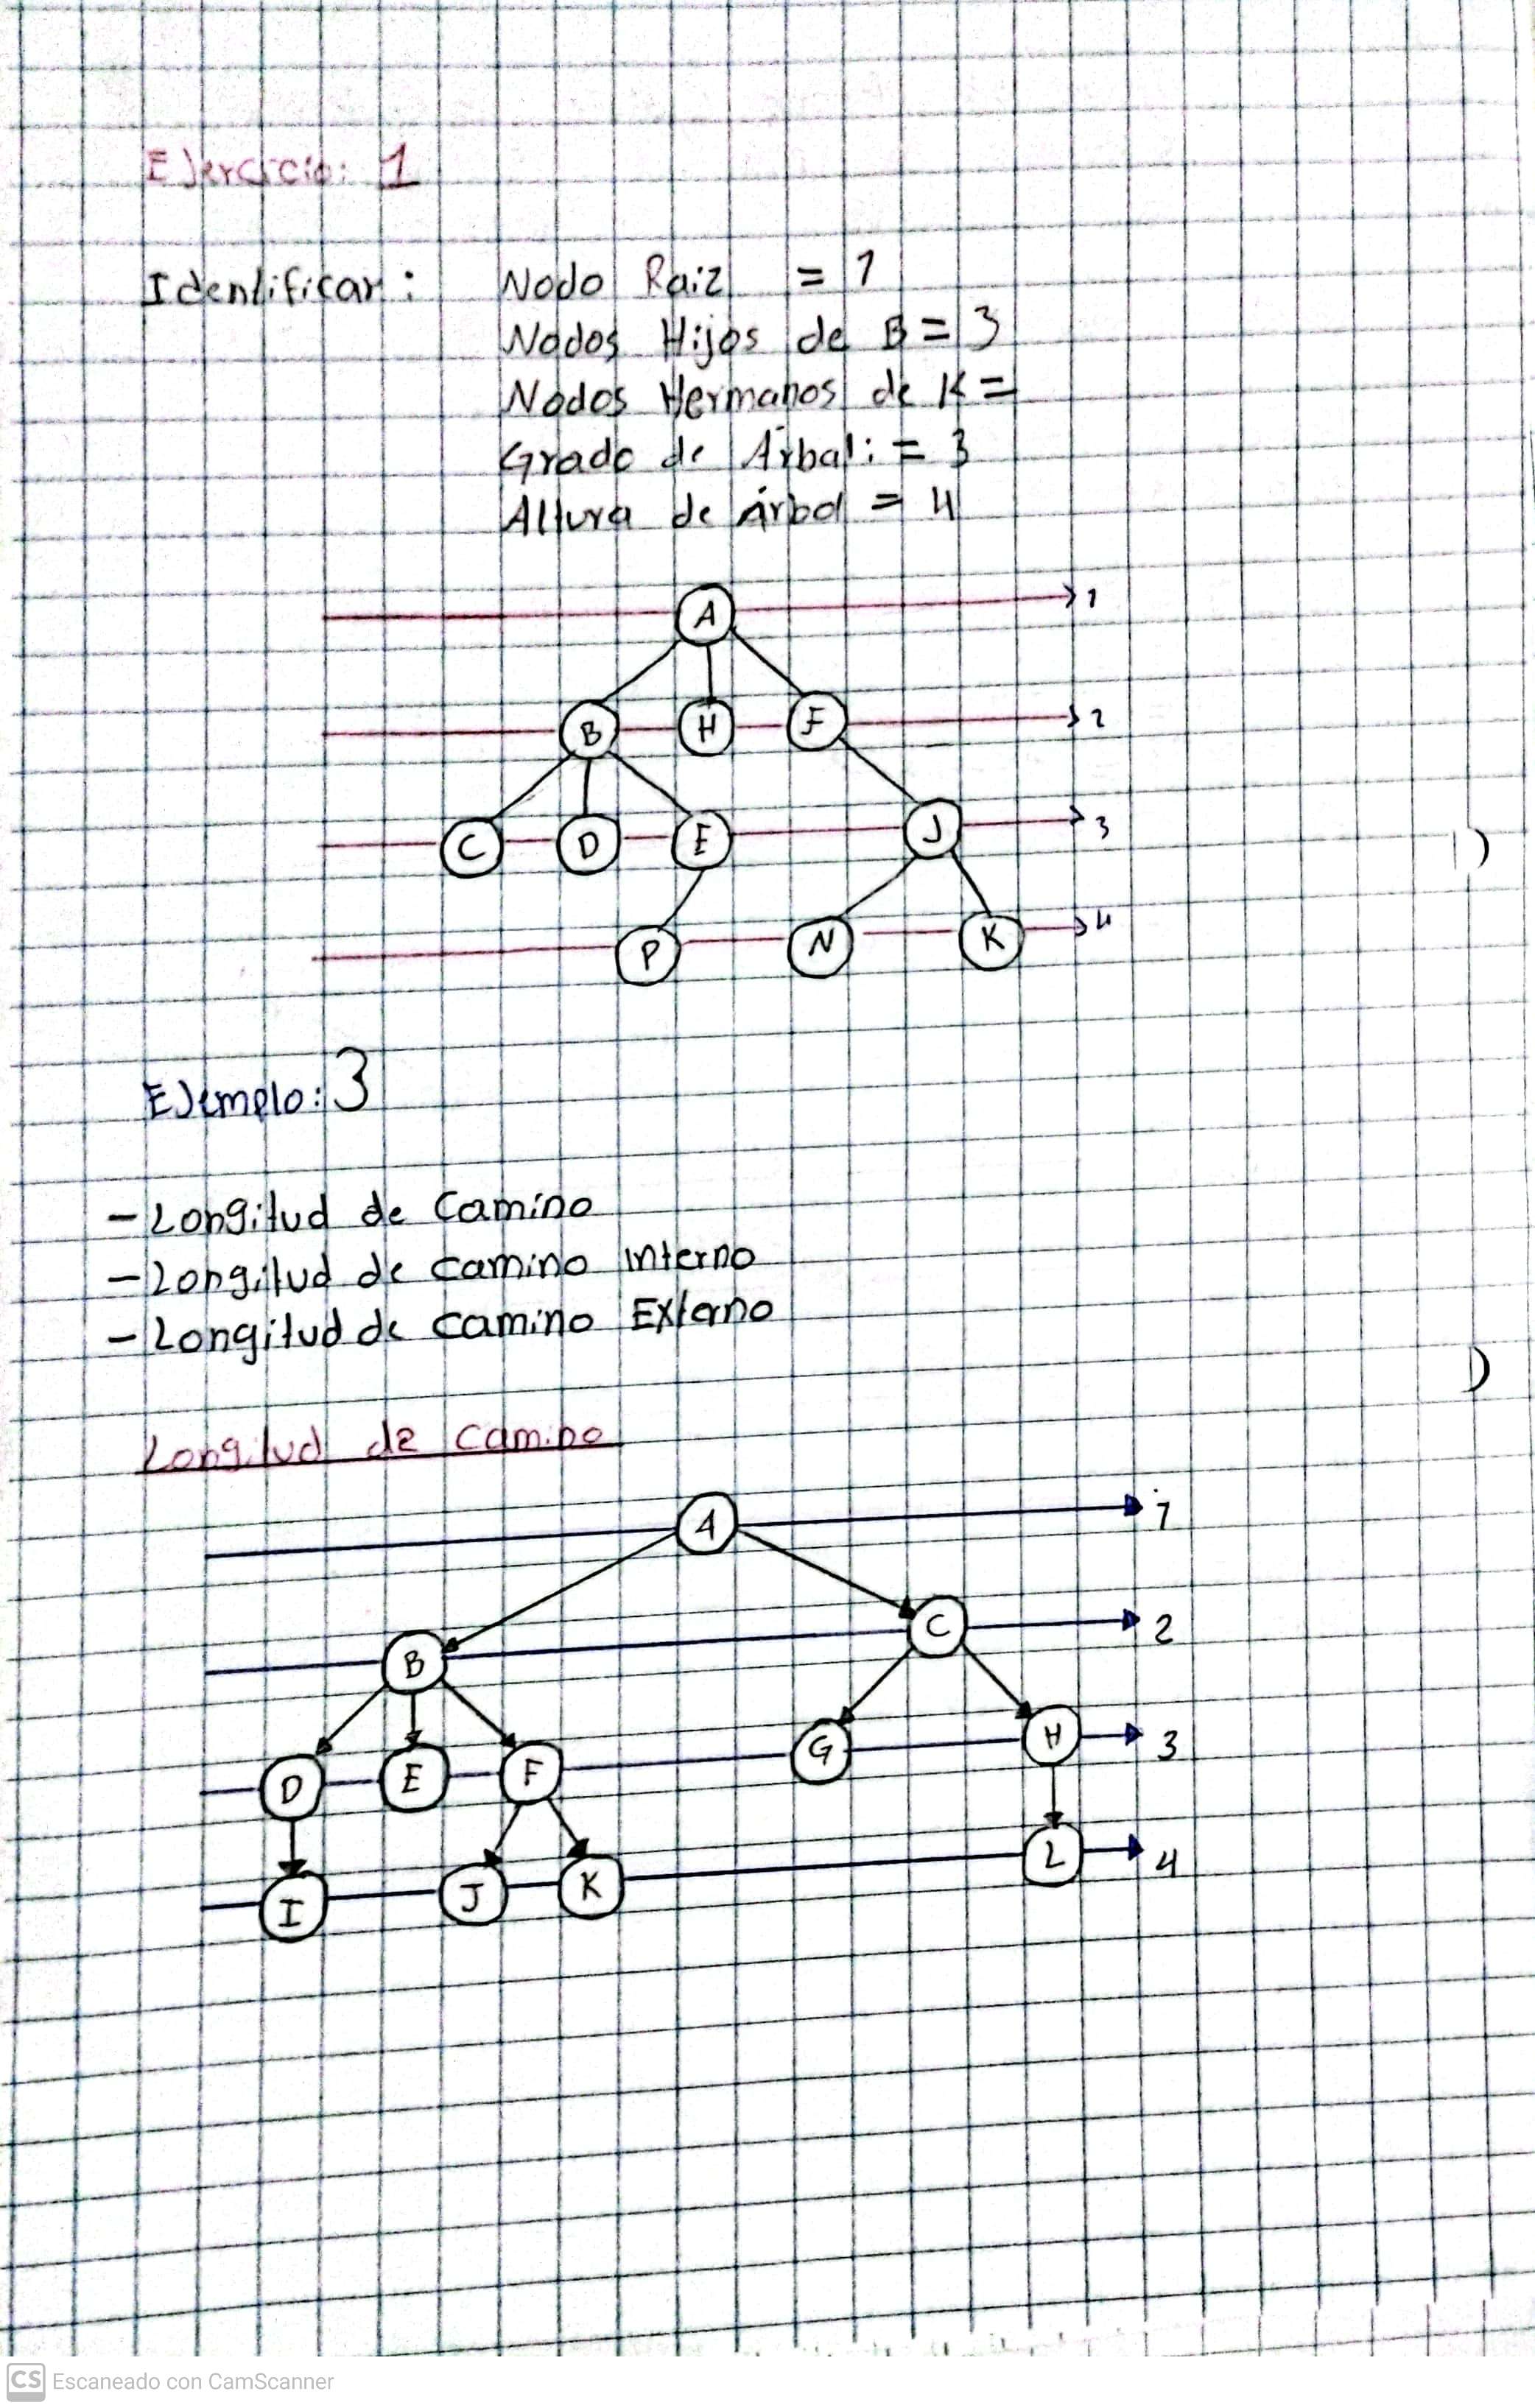 Ejercicio: 1
Identificar: Nodo Raiz = 1
Nodos Hijos de B = 3
Nodos Hermanos de K =
Grado de Árbol: = 3
Altura de árbol = 4
A 1
B H F 2
C D E J 3
P N K 4
Ejemplo: 3
- Longitud de Camino
- Longitud de camino interno
- Longitud de camino Externo
Longitud de camino
A 1
B C 2
D E F G H 3
I J K L 4
CS Escaneado con CamScanner